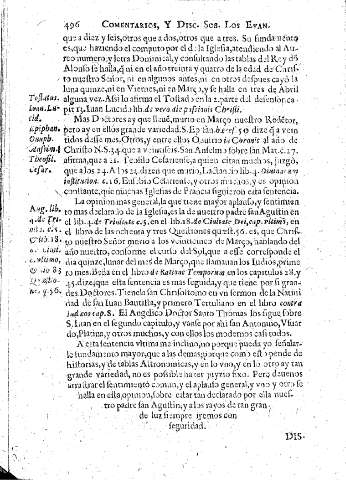 496 COMENTARIOS, Y DISC. SOB. LOS EVAN.
que a diez y seis, otros que a dos, otros que a tres. Su fundamento
es, que haziendo el computo por el de la Iglesia, atendiendo al Au-
reo numero, y letra Dominical, y consultando las tablas del Rey dõ
Alonso se halla, q̃ ni en el año treinta y quatro de la edad de Chris-
to nuestro Señor, ni en algunos antes, ni en otros despues cayò la
luna quinze, ni en Viernes, ni en Março, y se halla en tres de Abril
alguna vez. Assi lo afirma el Tostado en la 2. parte del defensor, ca-
pit. 13. Luan Lucid. lib. de vero die passionis Christi.
Mas Doctores ay que sienté, murio en Março nuestro Redétor,
pero ay en ellos grande variedad. S. Epifan. hæres. 50. dize q̃ a vein
tidos desse mes. Otros, y entre ellos Onufrio in Coronis al año de
Christo N. S. 34. que a veintiseis. San Anselmo sobre San Mat. c. 27.
afirma, que a 21. Teofilo Cesariense, a quien citan muchos, juzgò,
que a los 24. A los 23. dizen que murio, Lactancio lib. 4. divinarum
institution. c. 16. Eusebio Cesariense, y otros muchos, y es opinion
constante, que muchas Iglesias de Francia siguieron esta sentencia.
La opinion mas general, la que tiene mayor aplauso, y sentimien
to mas declarado de la Iglesia, es la de nuestro padre san Agustin en
el lib. 4. de Trinitate c. 5. en el lib. 18. de Civitate Dei, cap. vltimo, en
el libro de las ochenta y tres Questiones quest. 56. es, que Chris-
to nuestro Señor murio a los veinticinco de Março, hablando del
año nuestro, conforme el curso del Sol, que a este corresponde el
dia quinze, lunar del mes de Março, que llamauan los Iudios, prime
ro mes. Beda en el libro de Ratione Temporum en los capitulos 28. y
45. dize, que esta sentencia es mas seguida, y que tiene por si gran-
des Doctores. Tienela san Chrisostomo en vn sermon de la Natiui
dad de san Iuan Bautista, y primero Tertuliano en el libro contra
Iudæos cap. 8. El Angelico Doctor Santo Thomas los sigue sobre
S. Luan en el segundo capitulo, y vanse por ahi san Antonino, Vsuar
do, Platina, y otros muchos, y con ellos los modernos casi todos.
A esta sentencia vltima me inclino, no porque pueda yo señalar-
le fundamento mayor, que a las demas: porque como esto pende de
historias, y de tablas Astronomicas, y en lo vno, y en lo otro ay tan
grande variedad, no es possible hazer juyzio fixo. Pero deuemos
arrastrar el sentimiento comun, y el aplauso general, y vno y otro se
halla en esta, opinion, sobre estar tan declarado por ella nues-
tro padre san Agustin, y a los rayos de tan gran-
de luz siempre iremos con
seguridad.
DIS-
Tostatus.
Ioan. Lu-
cid.
Epiphan.
Onuph.
Anselm.
Theofil.
Cesar.
Aug. lib.
4. de Tri-